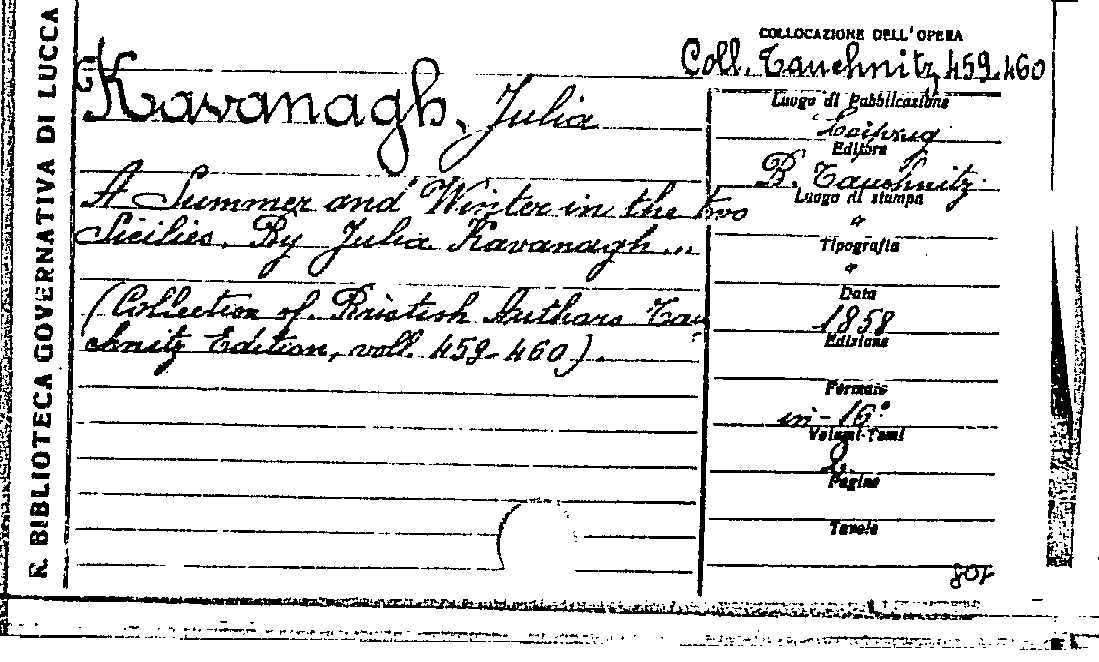 R. BIBLIOTECA GOVERNATIVA DI LUCCA
COLLOCAZIONE DELL'OPERA
Coll. Tauchnitz, 459-460
Kavanagh, Julia
A Summer and Winter in the two
Sicilies. By Julia Kavanagh ...
(Collection of British Authors Tau
chnitz Edition, voll. 459-460).
Luogo di Pubblicazione
Leipzig
Editore
B. Tauchnitz
Luogo di stampa
"
Tipografia
"
Data
1858
Edizione
Formato
in-16°
Volumi-Tomi
2
Pagine
Tavole